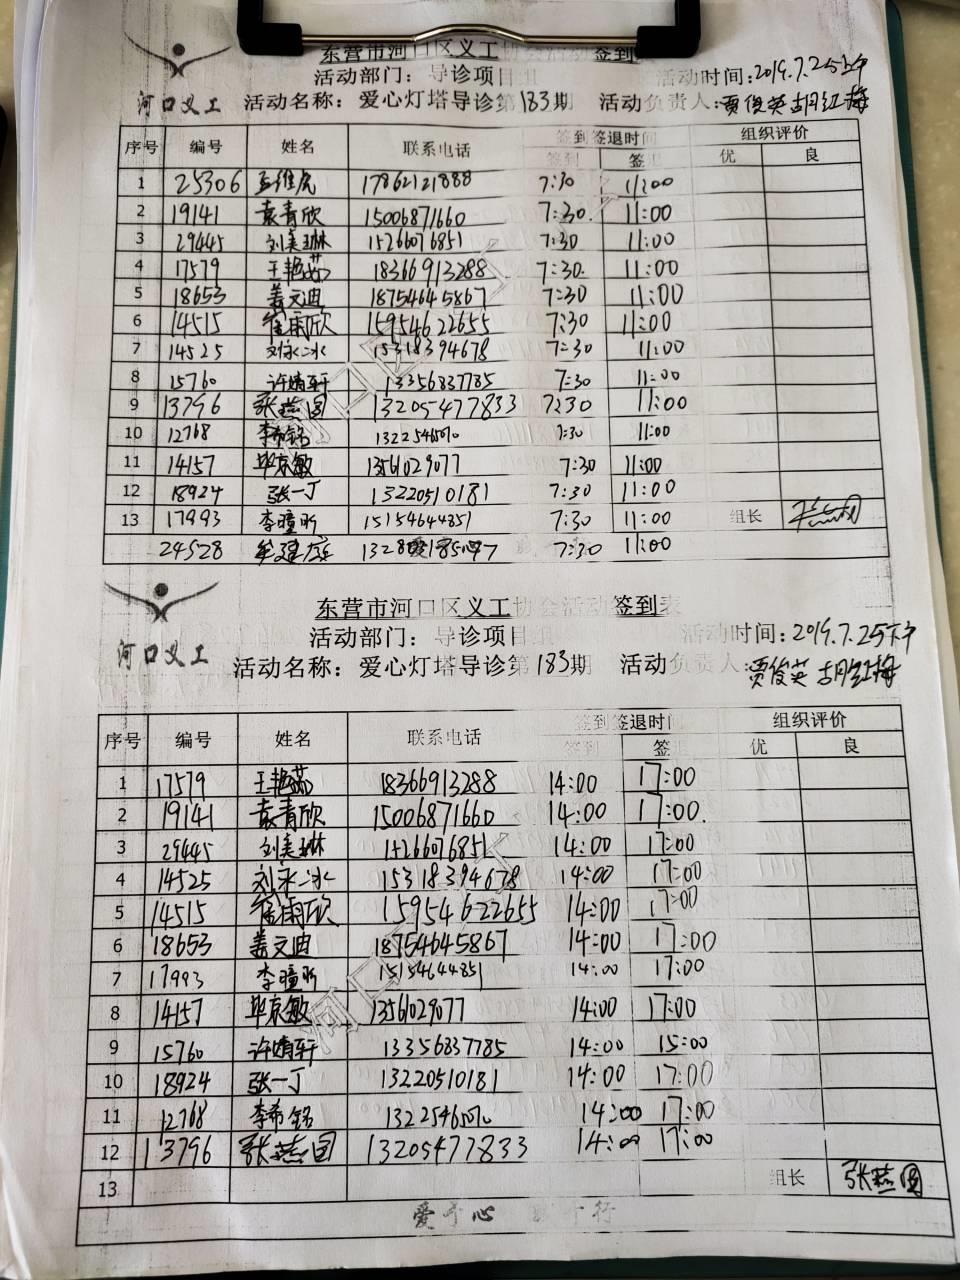 东营市河口区义工协会活动签到表
活动部门：导诊项目组 活动时间：2019.7.25上午
河口义工 活动名称：爱心灯塔导诊第183期 活动负责人：贾俊英 胡红梅
序号 编号 姓名 联系电话 签到签退时间 组织评价
签到 签退 优 良
1 25306 孟维虎 17862121888 7:30 11:00
2 19141 袁青欣 15006871660 7:30. 11:00
3 29445 刘美琳 15266076851 7:30 11:00
4 17579 王艳茹 18366913288 7:30. 11:00
5 18653 姜文迪 18754645867 7:30 11:00
6 14515 崔雨欣 15954622655 7:30 11:00
7 14525 刘冰冰 15318394678 7:30 11:00
8 15760 许婧轩 13356837785 7:30 11:00
9 13796 张燕园 13205477833 7:30 11:00
10 12768 李希铭 1322546 7:30 11:00
11 14157 毕京敏 13561029077 7:30 11:00
12 18924 张一丁 13220510181 7:30 11:00
13 17993 李瞳昕 15154644851 7:30 11:00 组长
24528 牟建 7:30 11:00
东营市河口区义工协会活动签到表
活动部门：导诊项目组 活动时间：2019.7.25下午
河口义工 活动名称：爱心灯塔导诊第183期 活动负责人：贾俊英 胡红梅
序号 编号 姓名 联系电话 签到签退时间 组织评价
签到 签退 优 良
1 17579 王艳茹 18366913288 14:00 17:00
2 19141 袁青欣 15006871660 14:00 17:00.
3 29445 刘美琳 15266076851 14:00 17:00
4 14525 刘冰冰 15318394678 14:00 17:00
5 14515 崔雨欣 15954622655 14:00 17:00
6 18653 姜文迪 18754645867 14:00 17:00
7 17993 李瞳昕 15154644851 14:00 17:00
8 14157 毕京敏 13561029077 14:00 17:00
9 15760 许婧轩 13356837785 14:00 15:00
10 18924 张一丁 13220510181 14:00 17:00
11 12768 李希铭 1322546 14:00 17:00
12 13796 张燕园 13205477833 14:00 17:00
13 组长 张燕园
爱于心 践于行